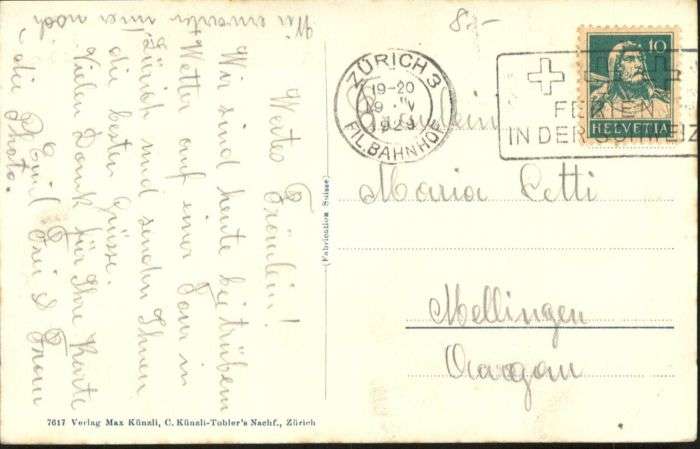 Wertes Fräulein!
Wir sind heute bei trübem
Wetter auf einer Tour in
Zürich und senden Ihnen
die besten Grüsse.
Vielen Dank für Ihre Karte
Emil Frei & Frau
Wir erwarten immer noch
die Photo.
8.-
ZÜRICH 3
19-20
1929
FIL. BAHNHOF
FERIEN
IN DER SCHWEIZ
10
HELVETIA
Fräulein
Maria Letti
Mellingen
Aargau
(Fabrication Suisse)
7617 Verlag Max Künzli, C. Künzli-Tobler's Nachf., Zürich